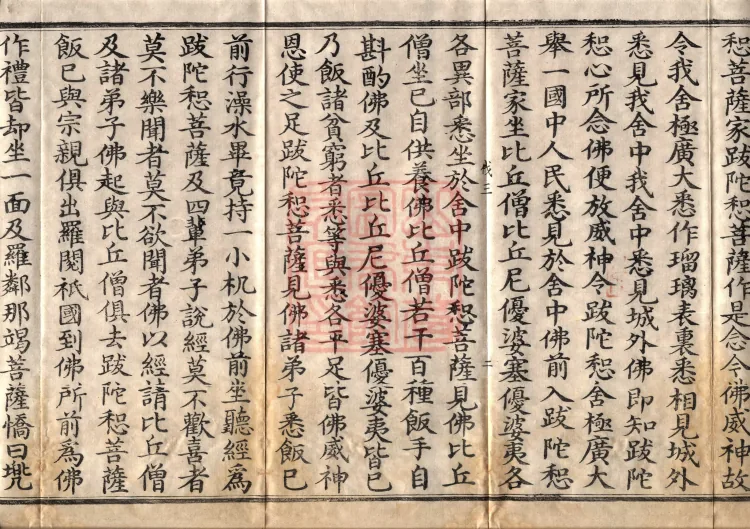 惒菩薩家跋陀惒菩薩作是念令佛威神故
令我舍極廣大悉作瑠璃表裏悉相見城外
悉見我舍中我舍中悉見城外佛即知跋陀
惒心所念佛便放威神令跋陀惒舍極廣大
舉一國中人民悉見於舍中佛前入跋陀惒
菩薩家坐比丘僧比丘尼優婆塞優婆夷各
各異部悉坐於舍中跋陀惒菩薩見佛比丘
僧坐已自供養佛比丘僧若干百種飯手自
斟酌佛及比丘比丘尼優婆塞優婆夷皆已
乃飯諸貧窮者悉等與悉各平足皆佛威神
恩使之足跋陀惒菩薩見佛諸弟子悉飯已
前行澡水畢竟持一小机於佛前坐聽經爲
跋陀惒菩薩及四輩弟子說經莫不歡喜者
莫不樂聞者莫不欲聞者佛以經請比丘僧
及諸弟子佛起與比丘僧俱去跋陀惒菩薩
飯已與宗親俱出羅閱祇國到佛所前爲佛
作禮皆却坐一面及羅鄰那竭菩薩憍曰兜